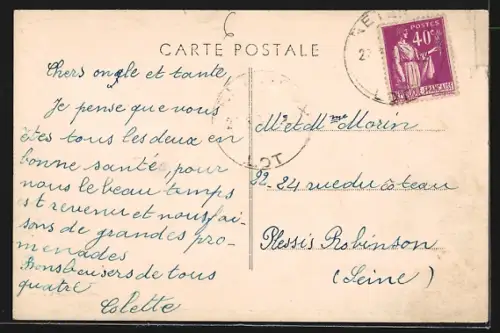 CARTE POSTALE
POSTES
40c
FRANÇAISE
LOT
Chers oncle et tante,
Je pense que vous
êtes tous les deux en
bonne santé, pour
nous le beau temps
est revenu et nous fai-
sons de grandes pro-
menades
Bons baisers de tous
quatre
Colette
Mr et Mme Morin
22-24 rue du côteau
Plessis Robinson
(Seine)